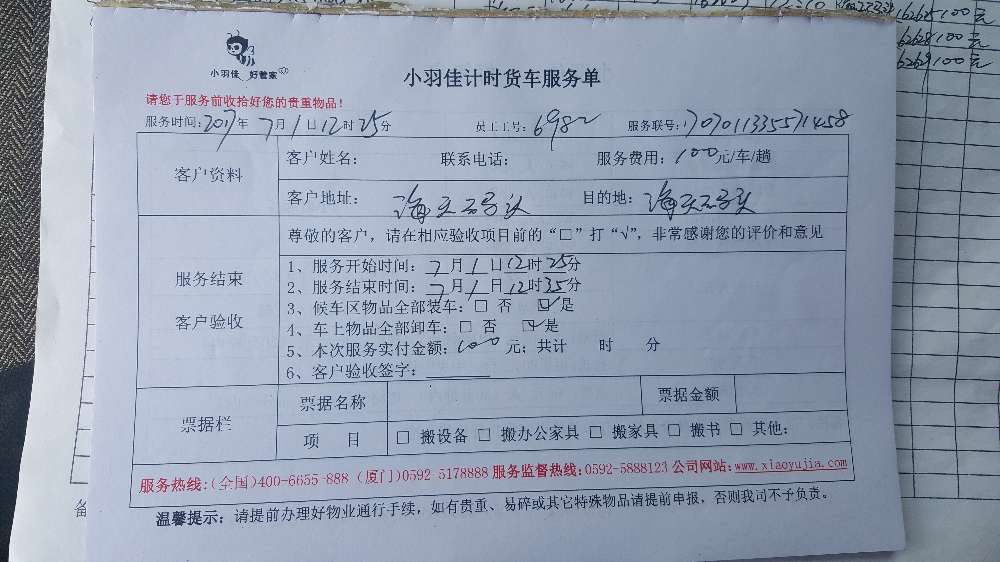 16268100元
16269100元
小羽佳 好管家
小羽佳计时货车服务单
请您于服务前收拾好您的贵重物品！
服务时间：2017年7月1日12时25分 员工工号：6982 服务联号：1707011335571458
客户资料
客户姓名： 联系电话： 服务费用：100元/车/趟
客户地址：海天码头 目的地：海天码头
服务结束
客户验收
尊敬的客户，请在相应验收项目前的“□”打“√”，非常感谢您的评价和意见
1、服务开始时间：7月1日12时25分
2、服务结束时间：7月1日12时35分
3、候车区物品全部装车：□ 否 ☑是
4、车上物品全部卸车：□ 否 ☑是
5、本次服务实付金额：100元；共计 时 分
6、客户验收签字：
票据栏
票据名称 票据金额
项 目 □ 搬设备 □ 搬办公家具 □ 搬家具 □ 搬书 □ 其他：
服务热线：(全国)400-6655-888 (厦门)0592-5178888 服务监督热线：0592-5888123 公司网站：www.xiaoyujia.com
温馨提示：请提前办理好物业通行手续，如有贵重、易碎或其它特殊物品请提前申报，否则我司不予负责。
备